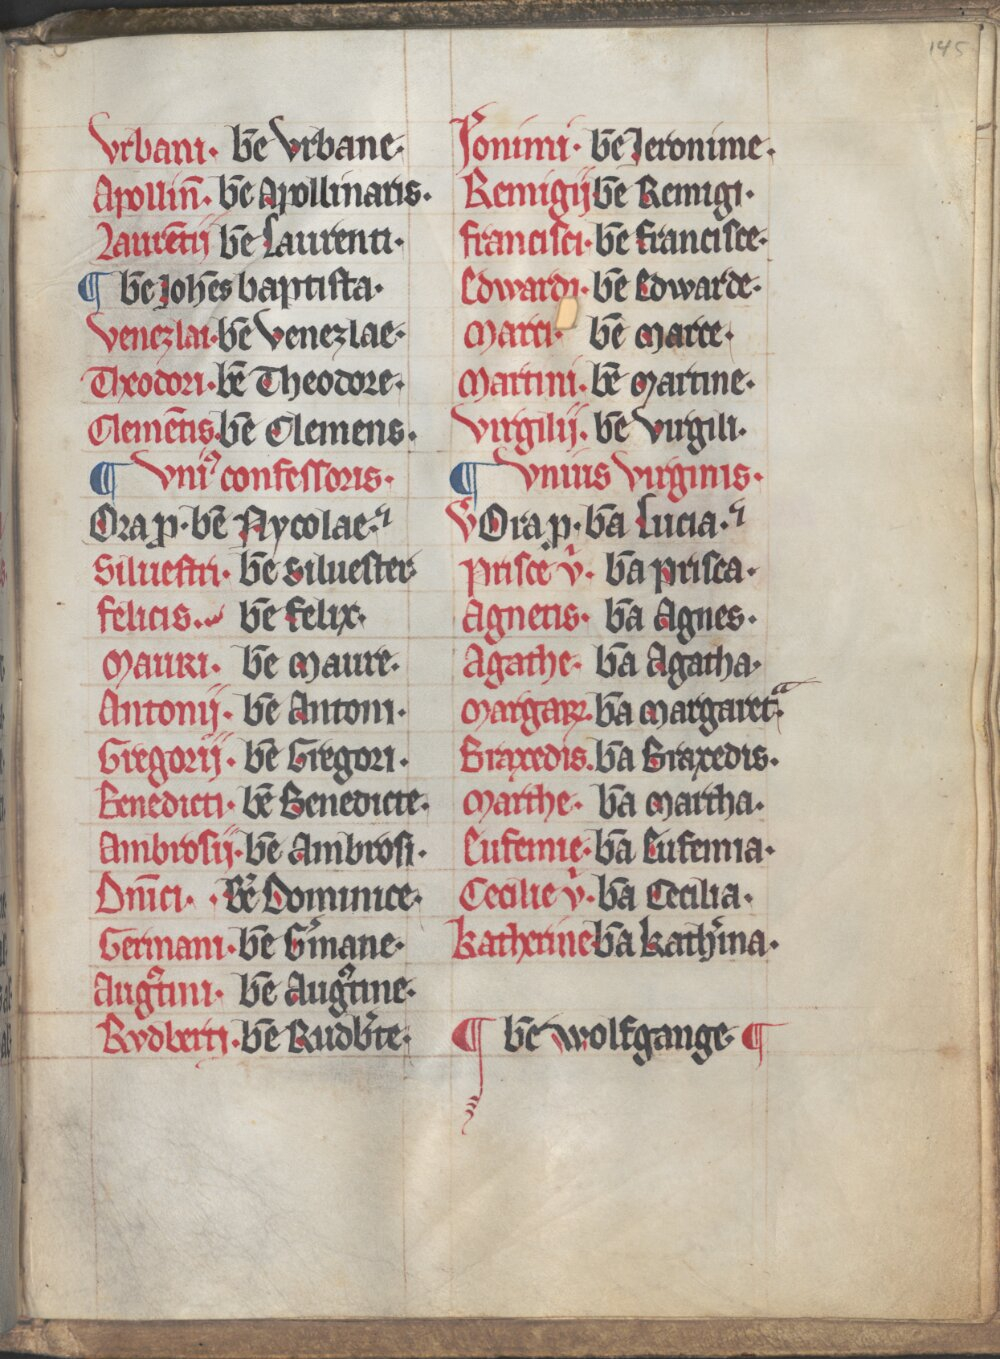 145
Vrbani· bē Vrbane·
Apollin̄· bē Apollinaris·
Laurētij bē Laurenti·
¶ bē Johēs baptista·
Venezlai· bē Venezlae·
Theodori· bē Theodore·
Clemētis· bē Clemens·
¶ Vniꝰ confessoris·
Ora p̱· bē Nycolae·
Siluestri· bē Siluester
felicis· bē felix·
Mauri· bē Maure·
Antonij· bē Antoni·
Gregorij· bē Gregori·
Benedicti· bē Benedicte·
Ambrosij· bē Ambrosi·
Dn̄ici· bē Dominice·
Germani· bē G̾mane·
Aug᷒tini· bē Aug᷒tine·
Rvdberti· bē Rudb̾te·
J̾onimi· bē Jeronime·
Remigij bē Remigi·
francisci· bē francisce·
Edwardi· bē Edwarde·
Marci· bē Marce·
Martini· bē Martine·
Virgilij· bē Virgili·
¶ Vnius virginis·
V̾ Ora p̱· bā Lucia·
Prisce v̾· bā prisca·
Agnetis· bā Agnes·
Agathe· bā Agatha·
Margarꝫ· bā Margaretᵃ·
Braxedis· bā Braxedis·
Marthe· bā Martha·
Eufemie· bā Eufemia·
Cecilie v̾· bā Cecilia·
katherine bā kath̾ina·
¶ bē wolfgange· ¶